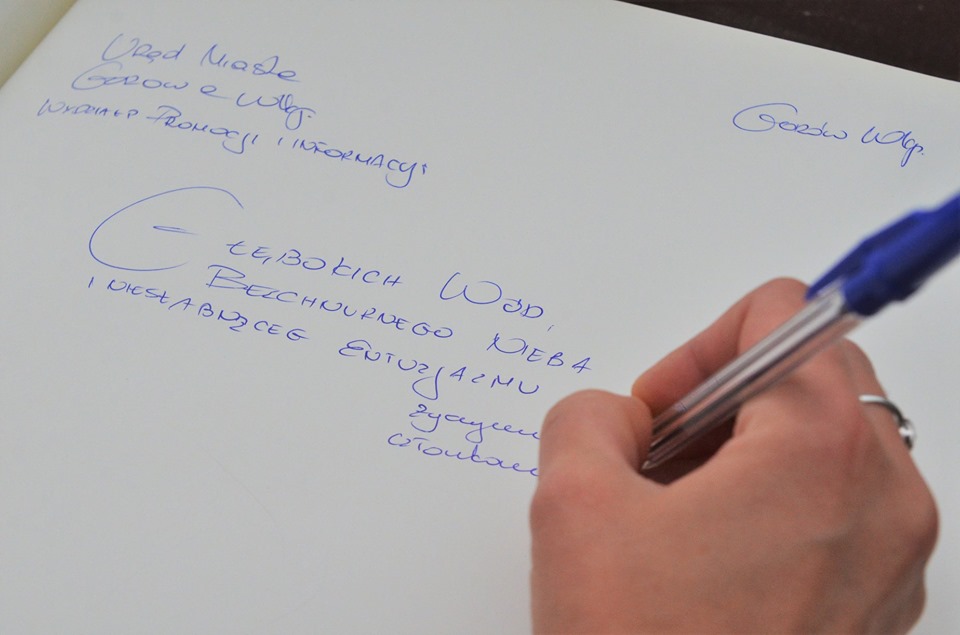 Urząd Miasta
Gorzów Wlkp.
Wydział Promocji i Informacji
Gorzów Wlkp.
Głębokich Wód,
Bezchmurnego Nieba
i niesłabnąceg Entuzjazmu
życzymy
członkom